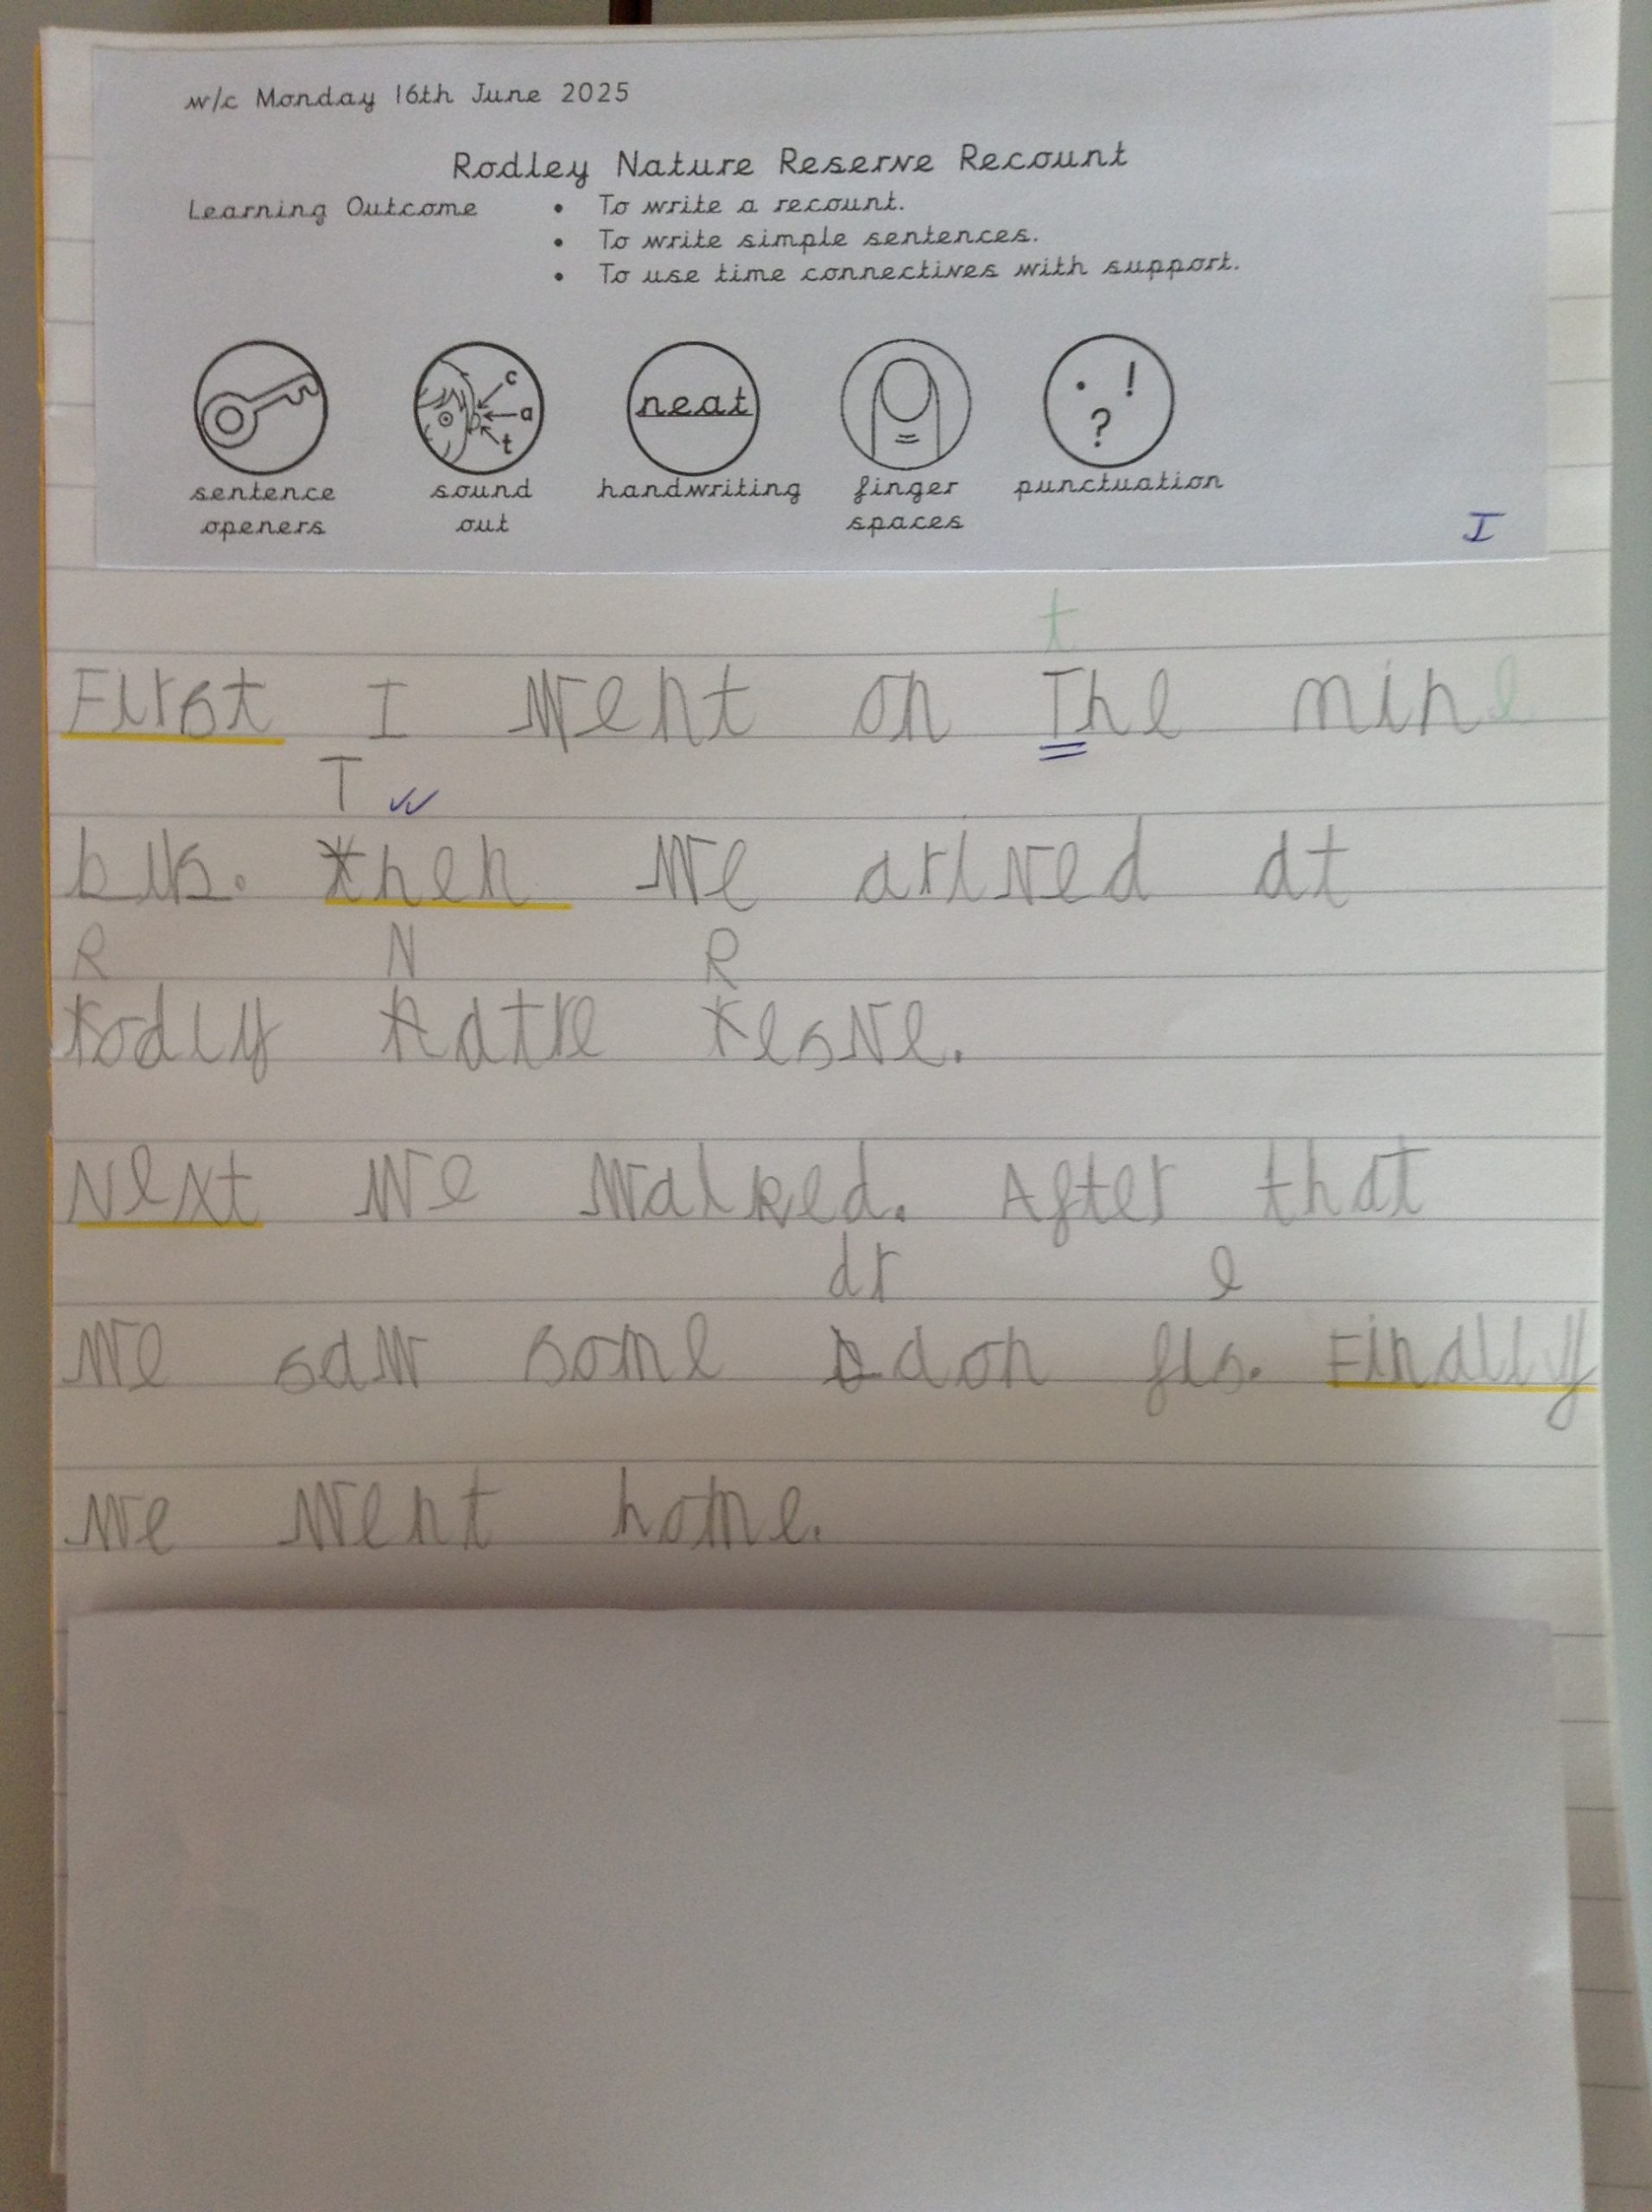 w/c Monday 16th June 2025
Rodley Nature Reserve Recount
Learning Outcome • To write a recount.
• To write simple sentences.
• To use time connectives with support.
c
a
t
neat
. ! ?
sentence openers
sound out
handwriting
finger spaces
punctuation
I
t
First I went on The mine
T
bus. then we arived at
R N R
rodly natre resve.
Next we walked. After that
dr e
we saw some don fls. Finally
we went home.